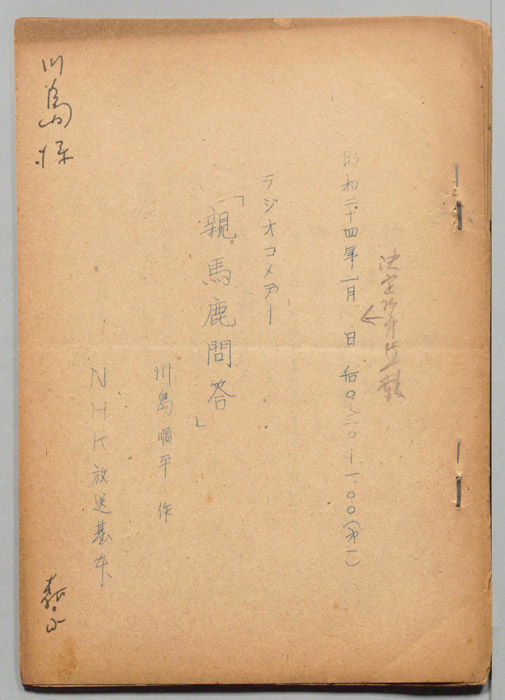 昭和二十四年一月　日　后〇・三〇―一・〇〇（第一）
ラジオコメデー
「親馬鹿問答」
川島順平　作
NHK放送基本
川島様